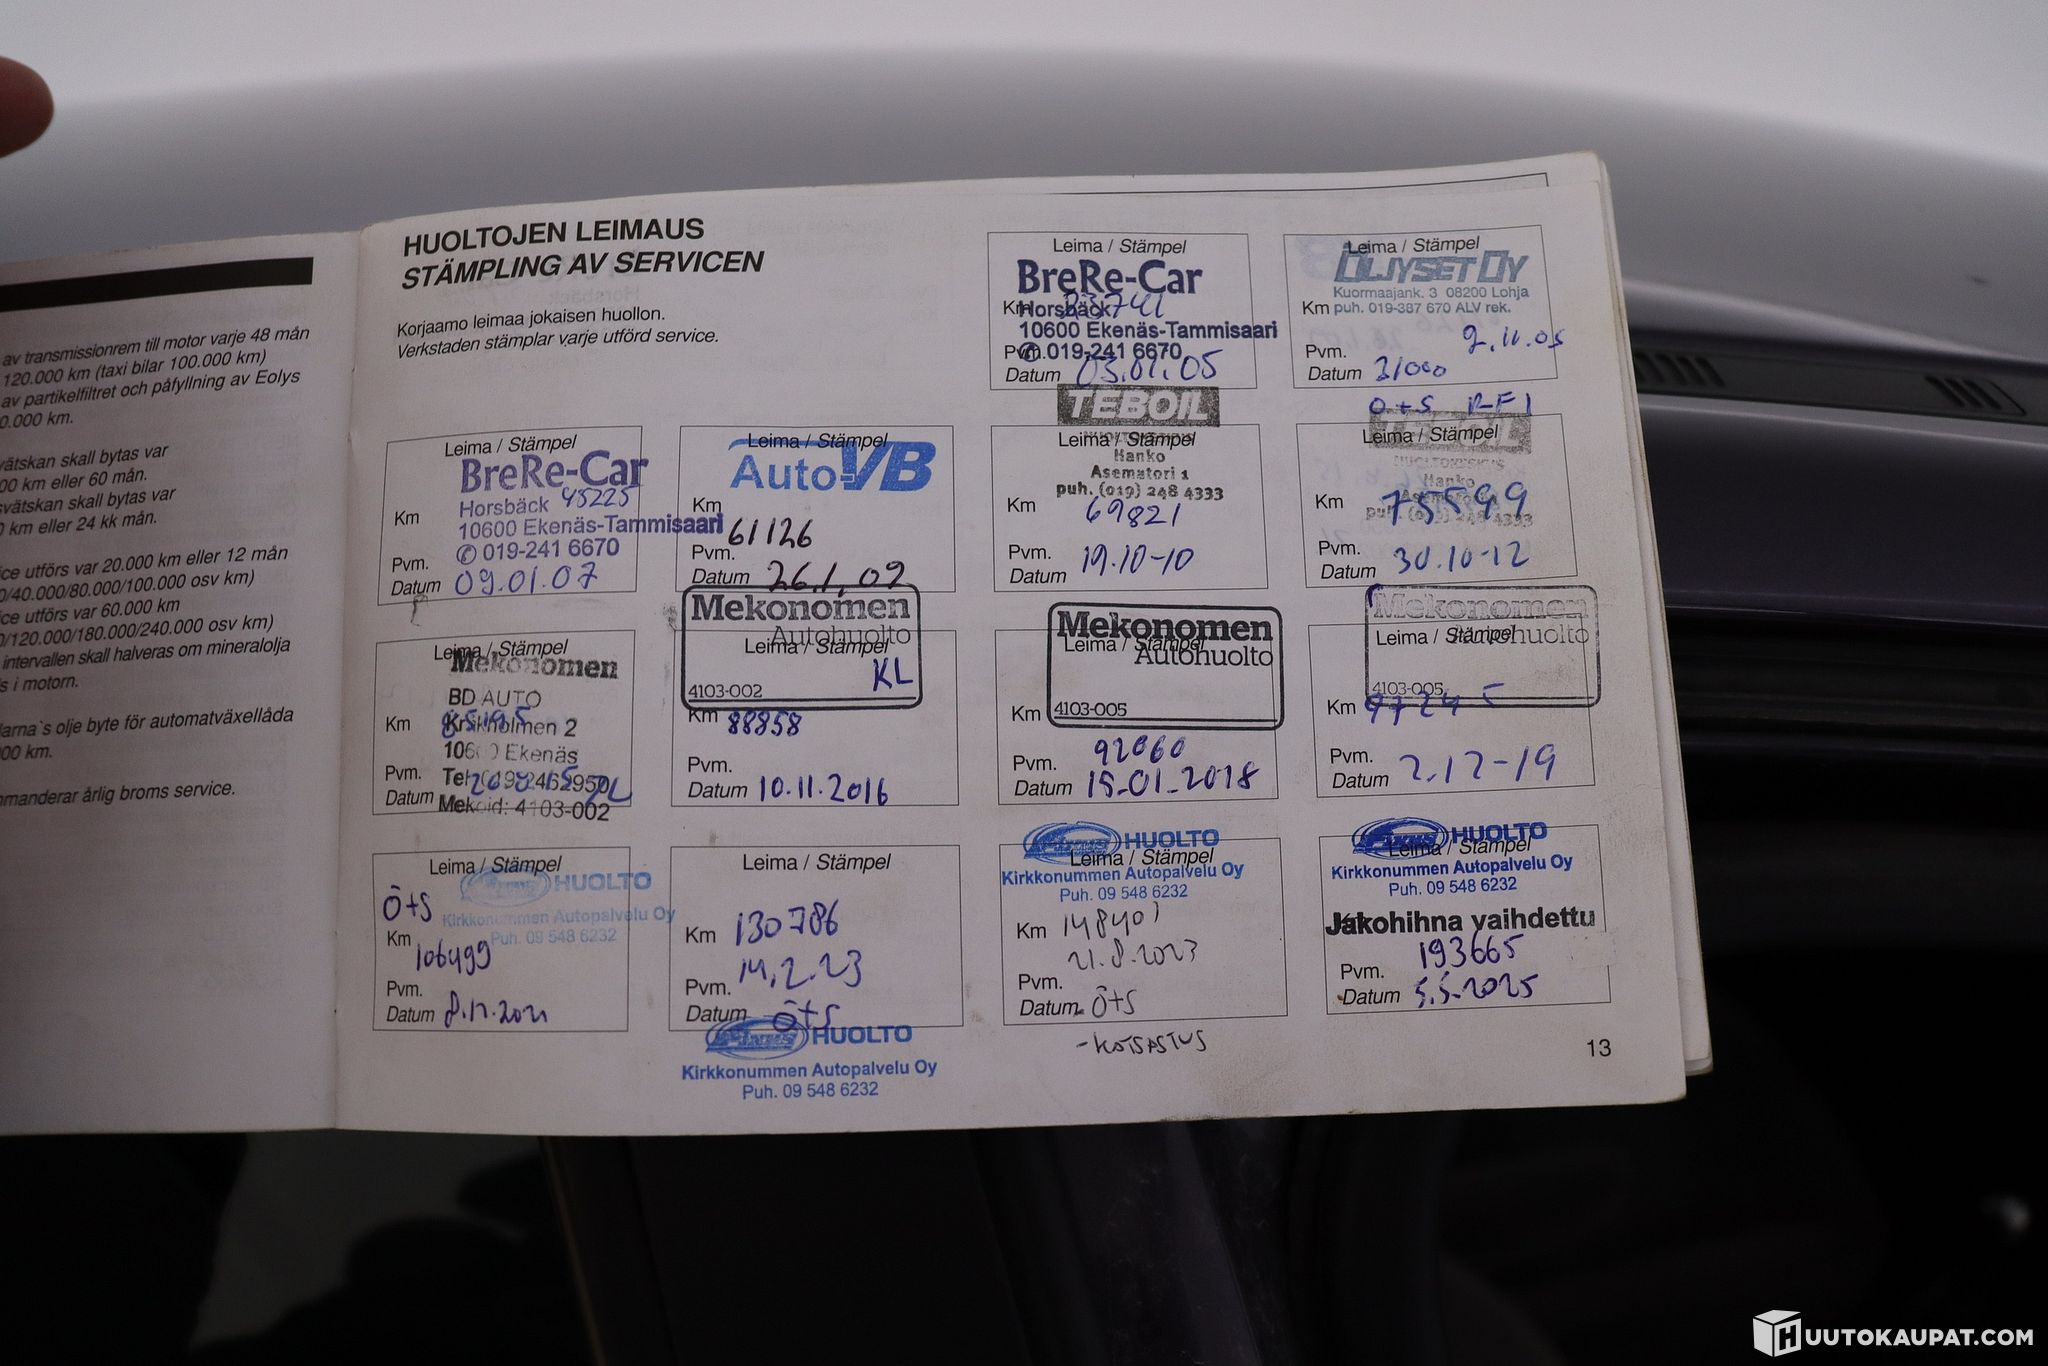 av transmissionrem till motor varje 48 mån
120.000 km (taxi bilar 100.000 km)
av partikelfiltret och påfyllning av Eolys
0.000 km.
vätskan skall bytas var
00 km eller 60 mån.
svätskan skall bytas var
) km eller 24 kk mån.
ice utförs var 20.000 km eller 12 mån
0/40.000/80.000/100.000 osv km)
ice utförs var 60.000 km
0/120.000/180.000/240.000 osv km)
intervallen skall halveras om mineralolja
s i motorn.
larna`s olje byte för automatväxellåda
00 km.
mmanderar årlig broms service.
HUOLTOJEN LEIMAUS
STÄMPLING AV SERVICEN
Korjaamo leimaa jokaisen huollon.
Verkstaden stämplar varje utförd service.
Leima / Stämpel
BreRe-Car
Km 23741
Horsbäck
10600 Ekenäs-Tammisaari
Pvm. ✆ 019-241 6670
Datum 03.01.05
Leima / Stämpel
ÖLJYSET OY
Kuormaajank. 3 08200 Lohja
Km puh. 019-387 670 ALV rek.
Pvm. 2.11.05
Datum 31000
Ö+S
Leima / Stämpel
BreRe-Car
Horsbäck 45225
Km 10600 Ekenäs-Tammisaari
Pvm. ✆ 019-241 6670
Datum 09.01.07
Leima / Stämpel
Auto-VB
Km 61126
Pvm.
Datum 26.1.09
TEBOIL
Leima / Stämpel
Hanko
Asematori 1
puh. (019) 248 4333
Km 69821
Pvm.
Datum 19.10-10
TEBOIL
Leima / Stämpel
HUOLTOKESKUS
Hanko
Km 75599
puh. (019) 248 4333
Pvm.
Datum 30.10-12
Leima / Stämpel
Mekonomen
BD AUTO
Km 85195
10600 Ekenäs
Pvm. Tel. 019 2462950
Datum
Mekoid: 4103-002
Mekonomen
Autohuolto
Leima / Stämpel
KL
4103-002
Km 88858
Pvm.
Datum 10.11.2016
Mekonomen
Autohuolto
Leima / Stämpel
4103-005
Km 92060
Pvm.
Datum 15-01-2018
Mekonomen
Autohuolto
Leima / Stämpel
4103-005
Km 97245
Pvm.
Datum 2.12-19
Leima / Stämpel
HUOLTO
Ö+S
Kirkkonummen Autopalvelu Oy
Km Puh. 09 548 6232
106499
Pvm.
Datum
Leima / Stämpel
Km 130786
Pvm. 14.2.23
Datum Ö+S
HUOLTO
Kirkkonummen Autopalvelu Oy
Puh. 09 548 6232
HUOLTO
Leima / Stämpel
Kirkkonummen Autopalvelu Oy
Puh. 09 548 6232
Km 148401
21.8.2023
Pvm.
Datum Ö+S
-KATSASTUS
HUOLTO
Leima / Stämpel
Kirkkonummen Autopalvelu Oy
Puh. 09 548 6232
Jakohihna vaihdettu
193665
Pvm.
Datum 5.5.2025
13
HUUTOKAUPAT.COM